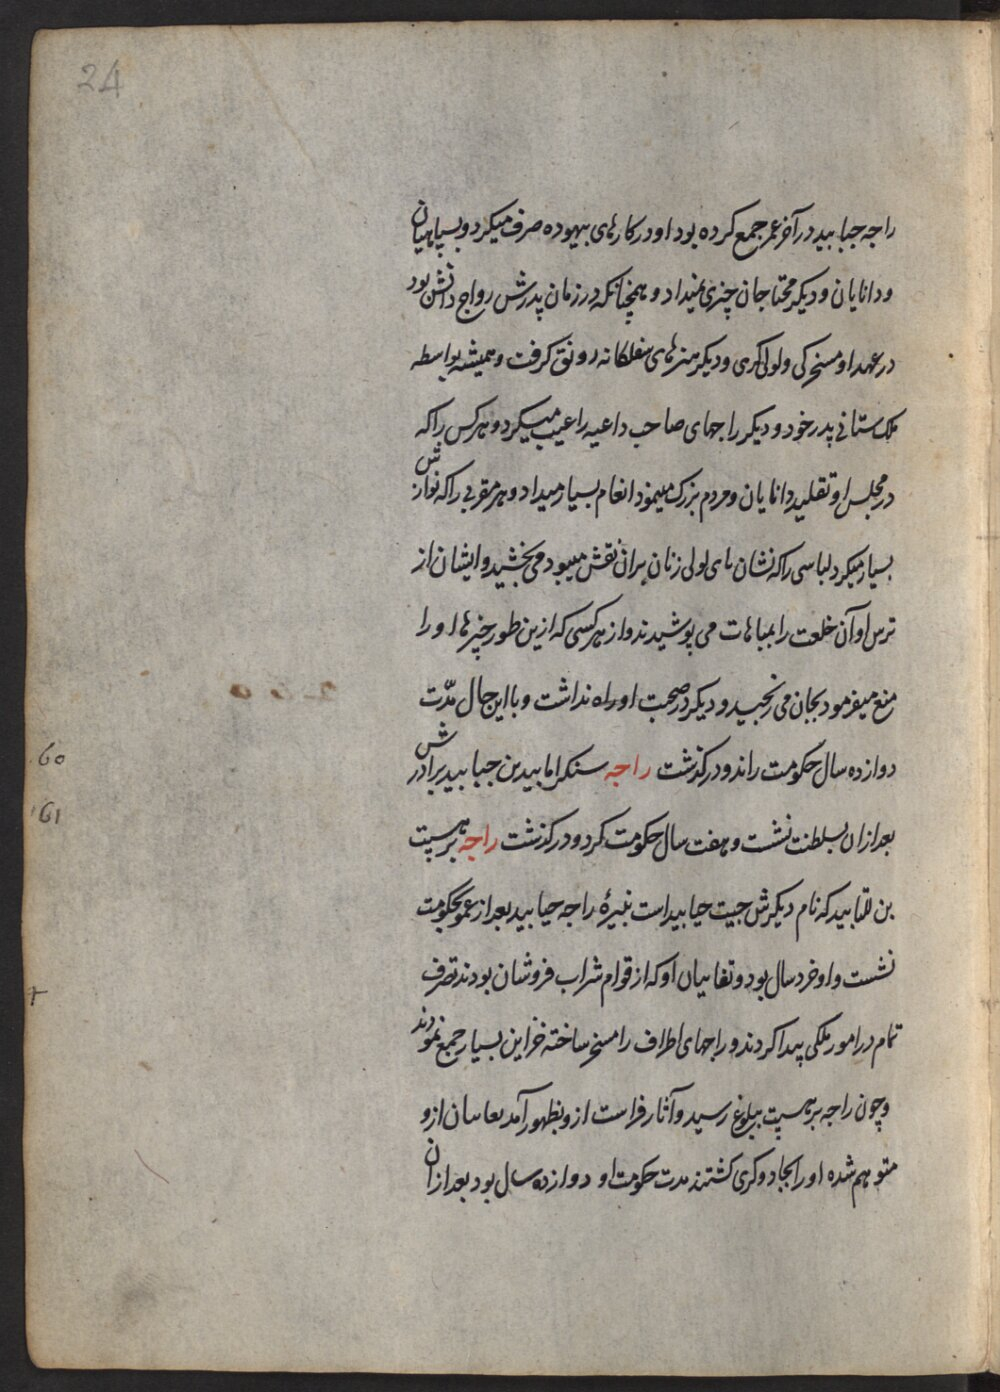 24
راجه جبابید در آخر عمر جمع کرده بود او در کارهای بیهوده صرف میکرد و بسپاهیان
و دانایان و دیکر محتاجان چیزی نمیداد و همچنانکه در زمان پدرش رواج دانش بود
در عهد او مسخرکی و لولی کری و دیکر هنرهای سفلکانه رونق کرفت و همیشه بواسطه
ملک ستانی پدر خود و دیکر راجهای صاحب داعیه را عیب میکرد و هر کس را که
در مجلس او تقلید دانایان و مردم بزرک مینمود انعام بسیار میداد و هر مقربی را که نوازش
بسیار میکرد لباسی را که نشان پای لولی زنان بران نقش میبود می بخشید و ایشان از
ترس او آن خلعت را بمباهات می پوشیدند و از هر کسی که ازین طور چیزها او را
منع میفرمود بجان می رنجید و دیکر در صحبت او راه نداشت و با این حال مدّت
60
دوازده سال حکومت راند و درکذشت راجه سنکرامابید بن جبابید برادرش
61
بعد ازان بسلطنت نشست و هفت سال حکومت کرد و درکذشت راجه برهسپت
بن للتابید که نام دیکرش جیت حیابید است نبیرهٔ راجه حیابید بعد از عمو بحکومت
نشست و او خرد سال بود و تغاییان او که از قوام شراب فروشان بودند تصرف
تمام در امور ملکی پیدا کردند و راجهای اطراف را مسخر ساخته خزاین بسیار جمع نمودند
و چون راجه برهسپت ببلوغ رسید و آثار فراست ازو بظهور آمد تغاییان ازو
متوهم شده او را بجادوکری کشتند مدت حکومت او دوازده سال بود بعد ازان